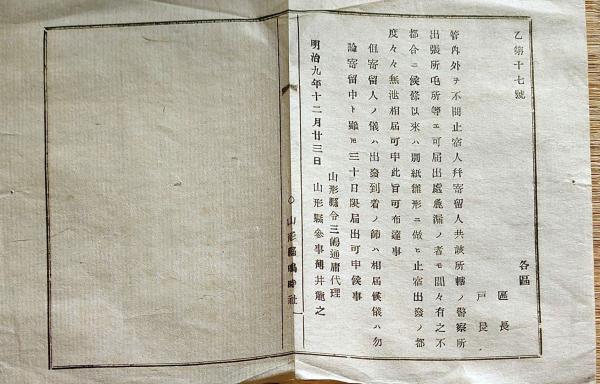 乙第十七號
各區
區長
戸長
管内外ヲ不問止宿人幷寄留人共該所轄ノ警察所
出張所屯所等エ可届出處麁漏ノ者モ間々有之不
都合ニ候條以來ハ別紙雛形ニ倣ヒ止宿出發ノ都
度々々無洩相届可申此旨可布達事
但寄留人ノ儀ハ出發到着ノ節ハ相届候儀ハ勿
論寄留中ト雖𪜈三十日限届出可申候事
明治九年十二月廿三日
山形縣令三島通庸代理
山形縣參事薄井龍之
〇山形縣鳴時社